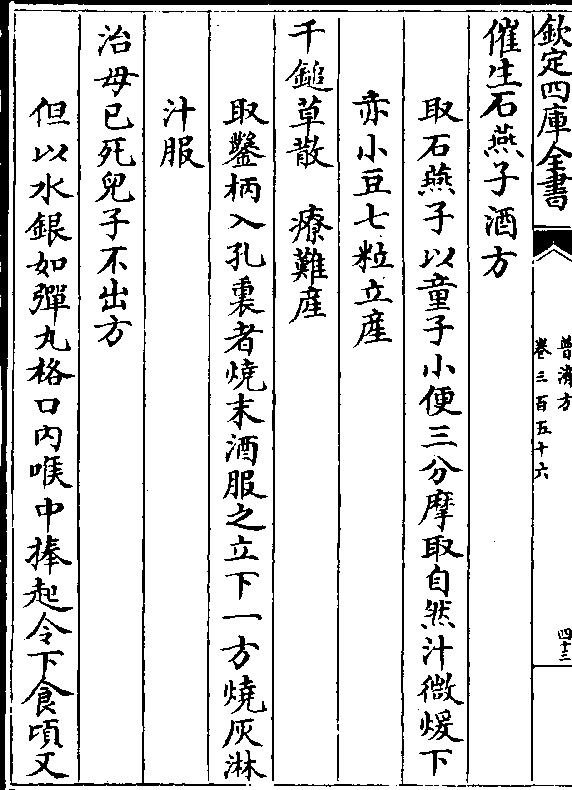 欽定四庫全書
普濟方
卷三百五十六
四十三
催生石燕子酒方
取石燕子以童子小便三分摩取自然汁微煖下
赤小豆七粒立産
千鎚草散 療難産
取鑿柄入孔裏者燒末酒服之立下一方燒灰淋
汁服
治母已死兒子不出方
但以水銀如彈丸格口內喉中捧起令下食頃又